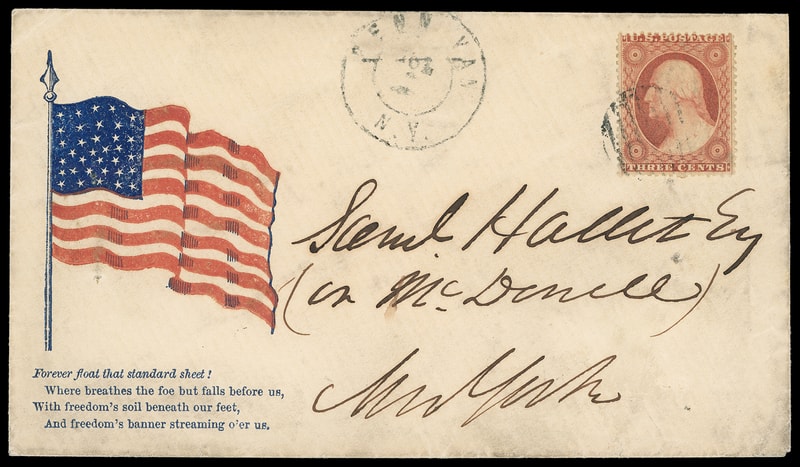 PENN YAN
N.Y.
U.S. POSTAGE
THREE CENTS
Saml Hallet Esq
(or McDowell)
New York
Forever float that standard sheet!
Where breathes the foe but falls before us,
With freedom's soil beneath our feet,
And freedom's banner streaming o'er us.